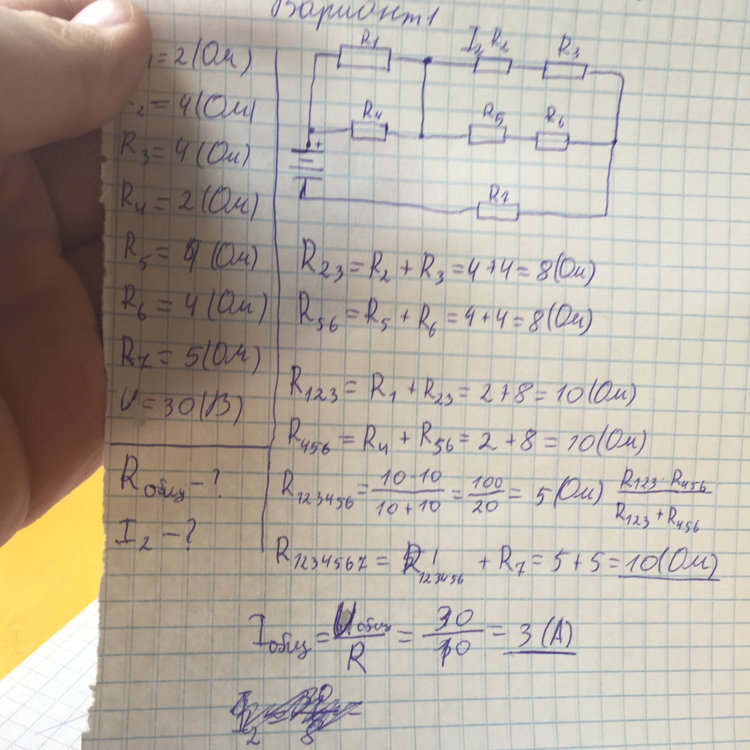 Вариант 1
R1
I2 R2
R3
R4
R5
R6
R7
+
= 2 (Ом)
2 = 4 (Ом)
R3 = 4 (Ом)
R4 = 2 (Ом)
R5 = 4 (Ом)
R6 = 4 (Ом)
R7 = 5 (Ом)
U = 30 (В)
Rобщ - ?
I2 - ?
R23 = R2 + R3 = 4 + 4 = 8 (Ом)
R56 = R5 + R6 = 4 + 4 = 8 (Ом)
R123 = R1 + R23 = 2 + 8 = 10 (Ом)
R456 = R4 + R56 = 2 + 8 = 10 (Ом)
R123456 = 10 · 10 / 10 + 10 = 100 / 20 = 5 (Ом) R123 · R456 / R123 + R456
R1234567 = R123456 + R7 = 5 + 5 = 10 (Ом)
Iобщ = Uобщ / R = 30 / 10 = 3 (А)